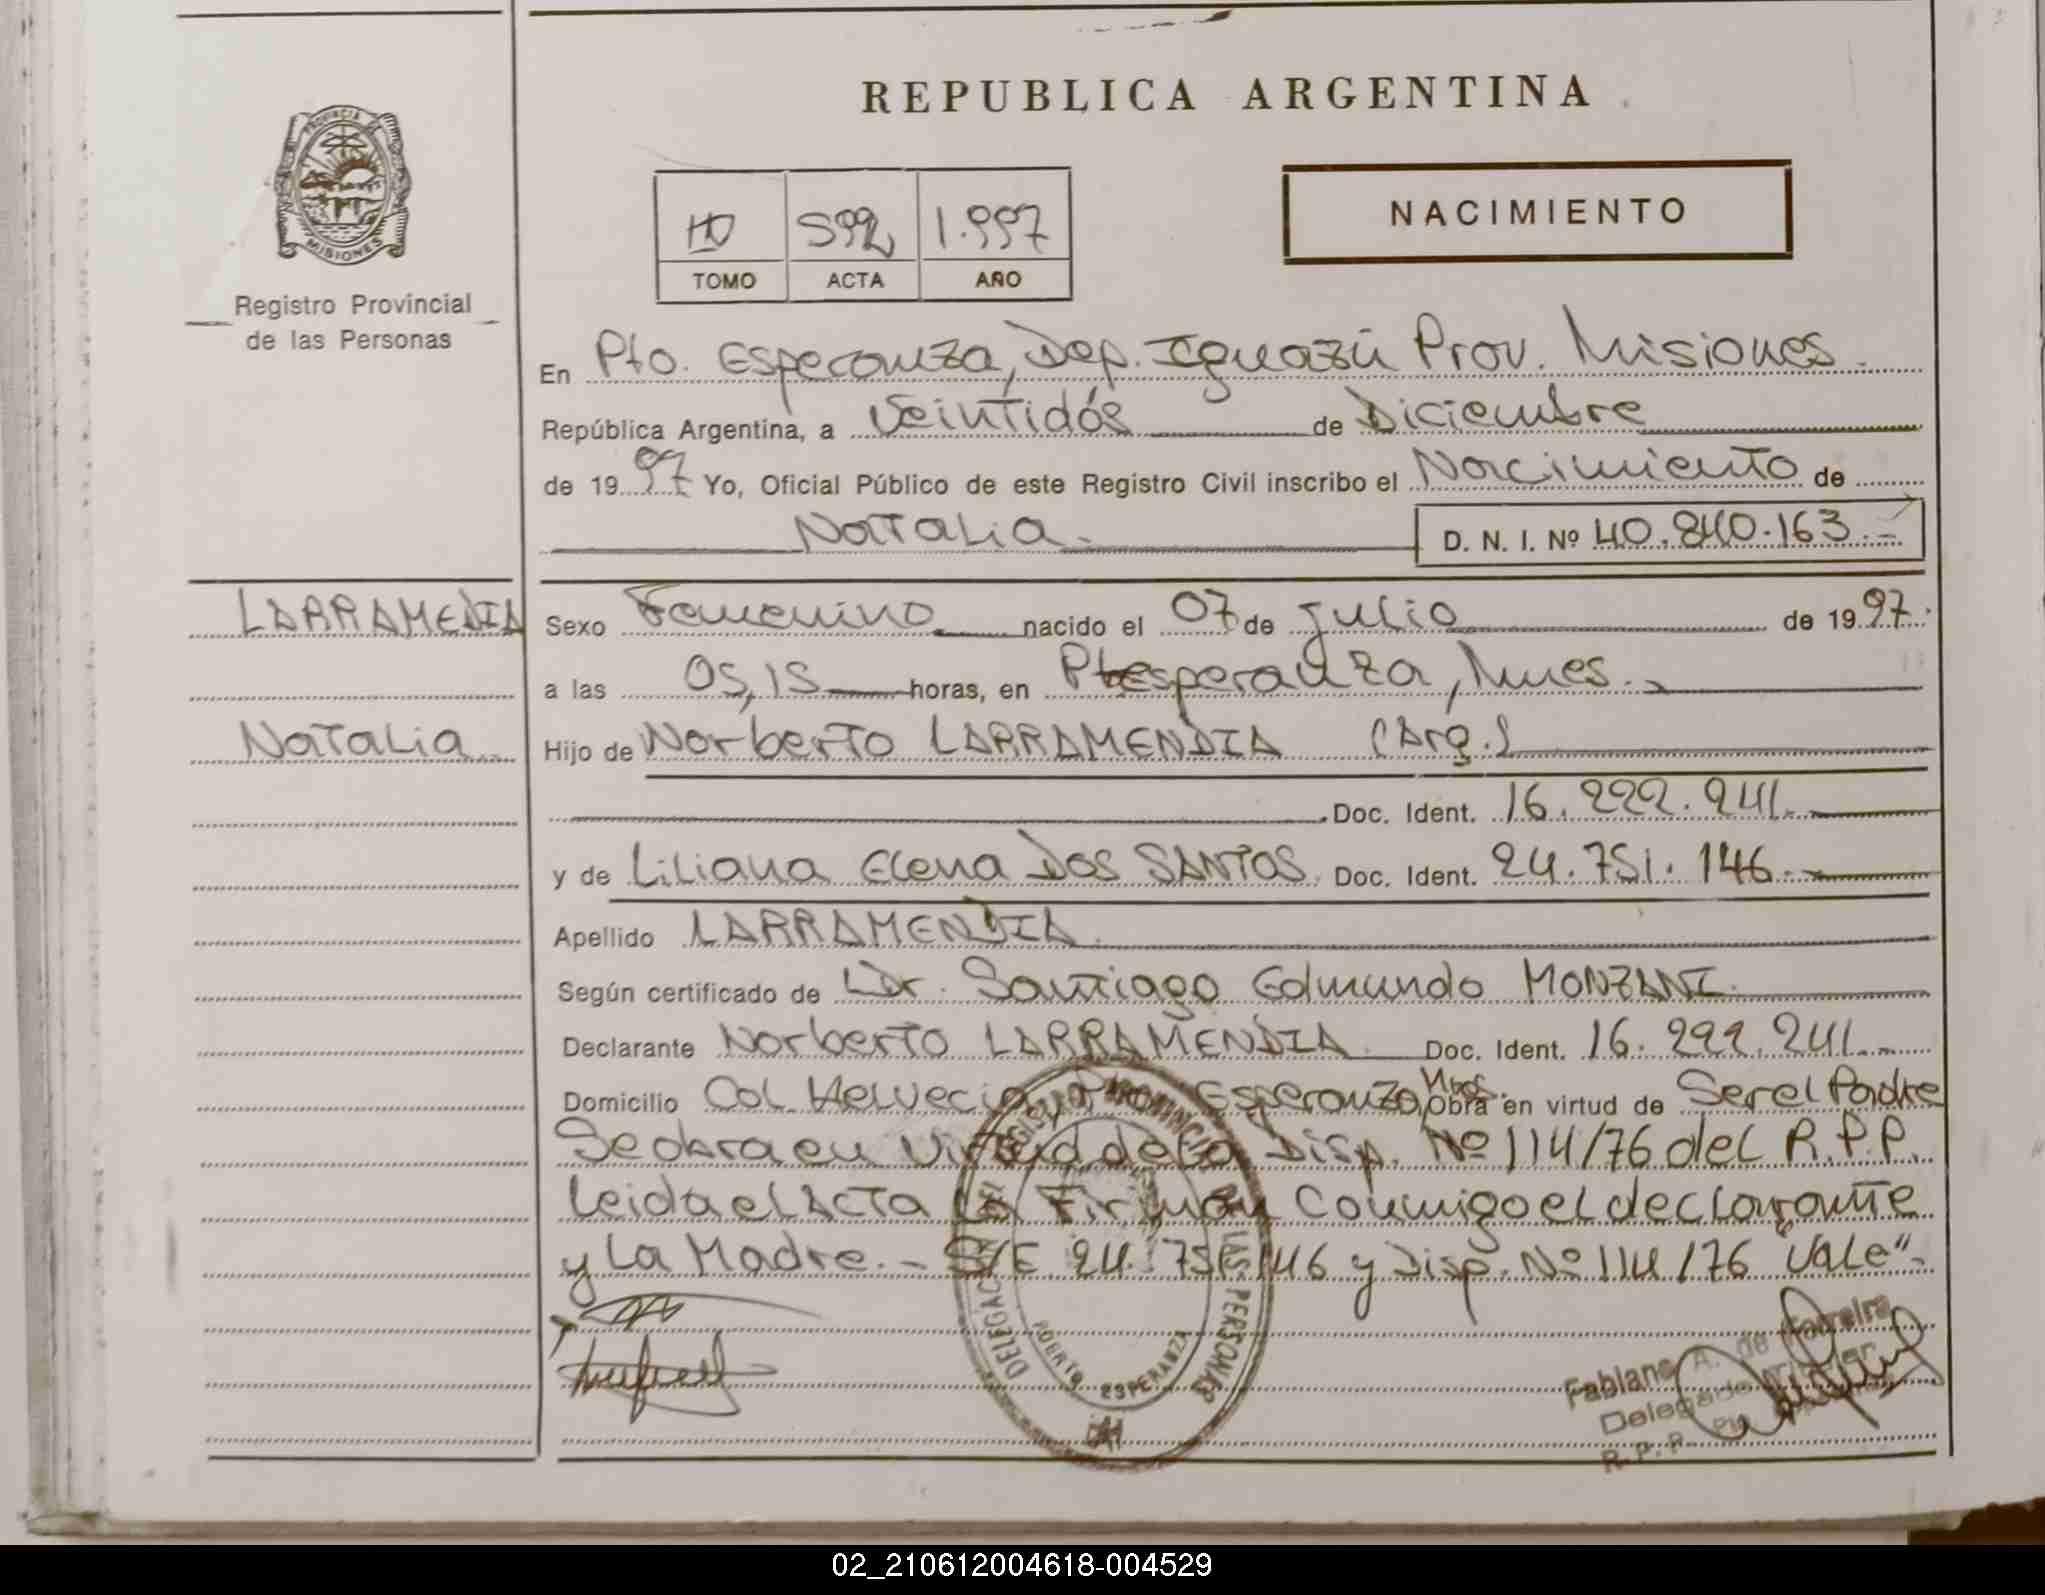 REPUBLICA ARGENTINA
PROVINCIA DE
MISIONES
Registro Provincial
de las Personas
592 1.997
TOMO ACTA AÑO
NACIMIENTO
En Pto. Esperanza, Dep. Iguazú Prov. Misiones.
República Argentina, a Veintidós de Diciembre
de 1997 Yo, Oficial Público de este Registro Civil inscribo el Nacimiento de
Natalia. D. N. I. Nº 40.840.163.-
LARRAMENDIA
Sexo Femenino nacido el 07 de julio de 1997.
a las 05,15 horas, en Ptoesperanza, Mnes.
Natalia
Hijo de Norberto LARRAMENDIA (Arg.)
Doc. Ident. 16.222.241.
y de Liliana Elena DOS SANTOS. Doc. Ident. 24.751.146.
Apellido LARRAMENDIA.
Según certificado de Dr. Santiago Edmundo MONZANI.
Declarante Norberto LARRAMENDIA Doc. Ident. 16.222.241.-
Domicilio Col. Helvecia Esperanza, Mnes. Obra en virtud de Ser el Padre
Se obra en Virtud de la Disp. Nº 114/76 del R.P.P.
Leida el Acta La Firman Conmigo el declarante
y La Madre.- S/E 24.751.146 y Disp. Nº 114/76 "Vale".
DELEGACION DEL REGISTRO PROVINCIAL DE LAS PERSONAS
PUERTO ESPERANZA
Fabiana A. de Ferreira
Delegada Titular
R. P. P.
02_210612004618-004529